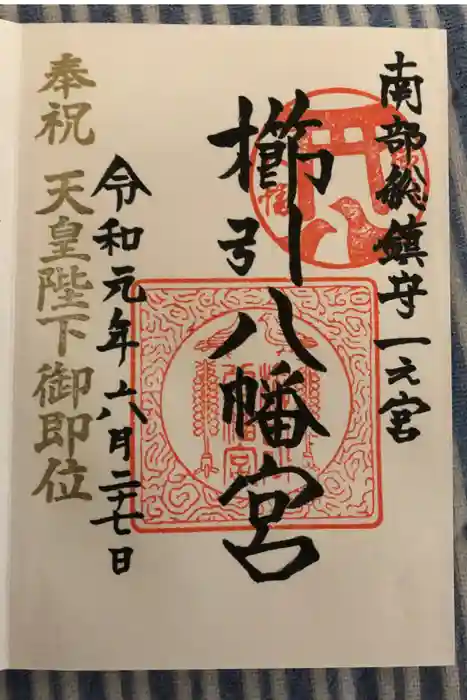 南部総鎮守一之宮
櫛引八幡宮
令和元年六月二十七日
奉祝 天皇陛下御即位